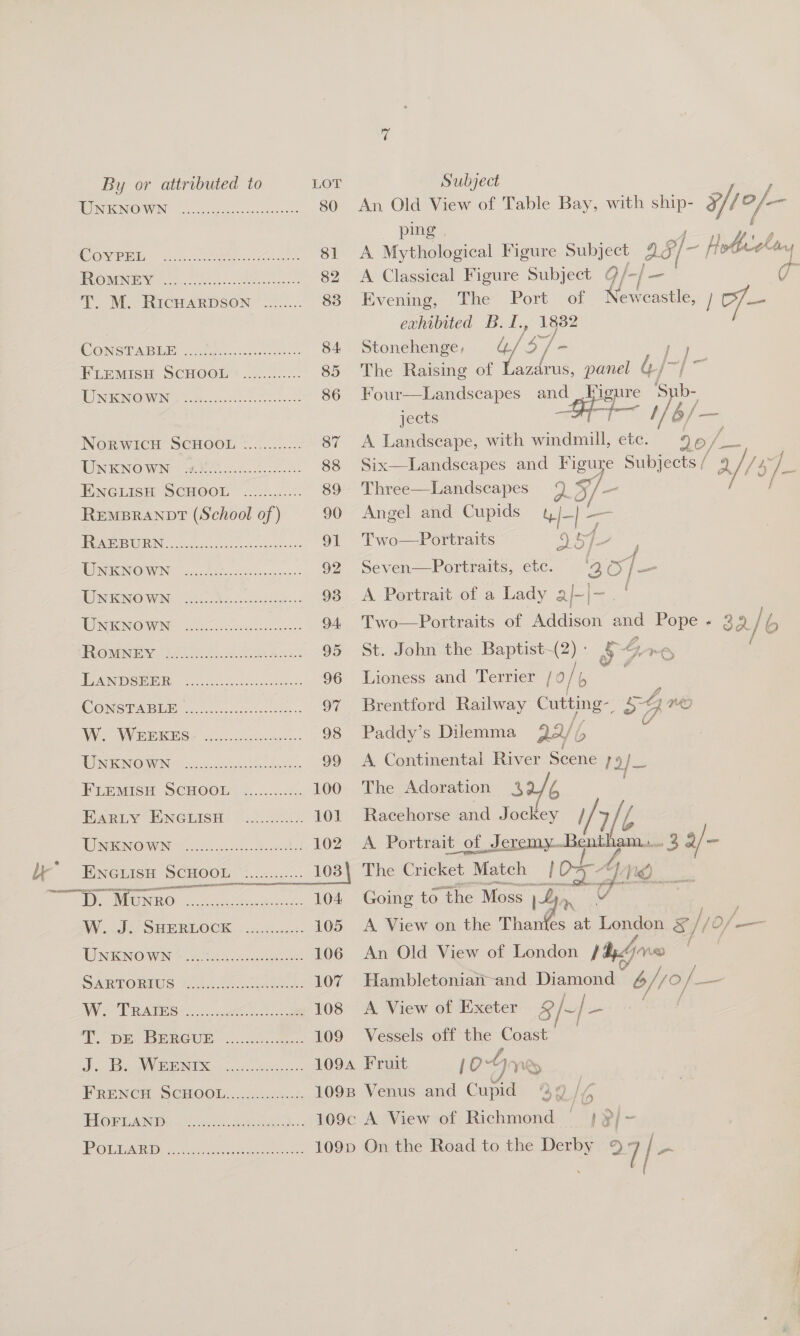 7
By or attributed to LOT Subject
UNKNOWN ........................ 80 An Old View of Table Bay, with ship- 3/10/-
ping
COYPEL ........................ 81 A Mythological Figure Subject 28/-
ROMNEY ........................ 82 A Classical Figure Subject 9/-/-
T. M. RICHARDSON ........ 83 Evening, The Port of Newcastle,
exhibited B.I., 1832
CONSTABLE ........................ 84 Stonehenge, 4/5/-
FLEMISH SCHOOL ............ 85 The Raising of Lazarus, panel 4/-/-
UNKNOWN ........................ 86 Four—Landscapes and Figure Sub-
jects 1/6/-
NORWICH SCHOOL ............ 87 A Landscape, with windmill, etc. 20/-
UNKNOWN ........................ 88 Six—Landscapes and Figure Subjects 2//5/-
ENGLISH SCHOOL ............ 89 Three—Landscapes 25/-
REMBRANDT (School of) 90 Angel and Cupids 4/-/-
RAEBURN........................ 91 Two—Portraits 25/-
UNKNOWN ........................ 92 Seven—Portraits, etc. 20/-
UNKNOWN ........................ 93 A Portrait of a Lady 2/-/-
UNKNOWN ........................ 94 Two—Portraits of Addison and Pope - 32/6
ROMNEY ........................ 95 St. John the Baptist (2) 5 Gns
LANDSEER ........................ 96 Lioness and Terrier 10/6
CONSTABLE ........................ 97 Brentford Railway Cutting- 5 Gns
W. WEEKES ........................ 98 Paddy's Dilemma 22/6
UNKNOWN ........................ 99 A Continental River Scene 12/-
FLEMISH SCHOOL ............ 100 The Adoration 32/6
EARLY ENGLISH ............ 101 Racehorse and Jockey 1/7/6
UNKNOWN ........................ 102 A Portrait of Jeremy Bentham... 32/-
ENGLISH SCHOOL ............ 103 The Cricket Match 105 Gns
D. MUNRO ........................ 104 Going to the Moss
W. J. SHERLOCK ............ 105 A View on the Thames at London 8/10/-
UNKNOWN ........................ 106 An Old View of London
SARTORIUS ........................ 107 Hambletonian and Diamond 6/10/-
W. TRAIES ........................ 108 A View of Exeter 8/-/-
T. DE BERGUE ............ 109 Vessels off the Coast
J. B. WEENIX ............ 109A Fruit 10 Gns
FRENCH SCHOOL............ 109B Venus and Cupid 32/6
HOFLAND ........................ 109C A View of Richmond 18/-
POLLARD ........................ 109D On the Road to the Derby 27/-